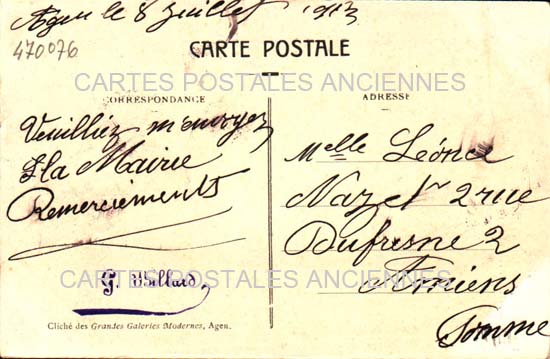 Agen le 8 Juillet 1913
470076
CARTE POSTALE
CARTES POSTALES ANCIENNES
CORRESPONDANCE
ADRESSE
Veuilliez m'envoyez
la Mairie
Remerciements
G. Billard
Melle Léonce
Nazet 2 rue
Dufresne 2
Amiens
Somme
CARTES POSTALES ANCIENNES
Cliché des Grandes Galeries Modernes, Agen.